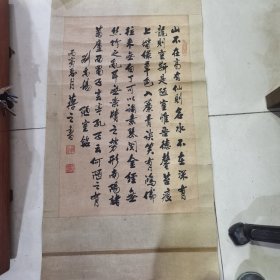 山不在高有仙则名水不在深有
龍则靈斯是陋室惟吾德馨苔痕
上階绿草色入簾青谈笑有鴻儒
往来無白丁可以调素琴阅金经無
丝竹之亂耳無案牍之劳形南陽諸
葛廬西蜀子雲亭孔子云何陋之有
劉禹锡 陋室銘